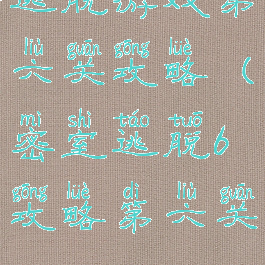 逃脱游戏第
liù guān gōng lüè
六关攻略（
mì shì táo tuō
密室逃脱6
gōng lüè dì liù guān
攻略第六关